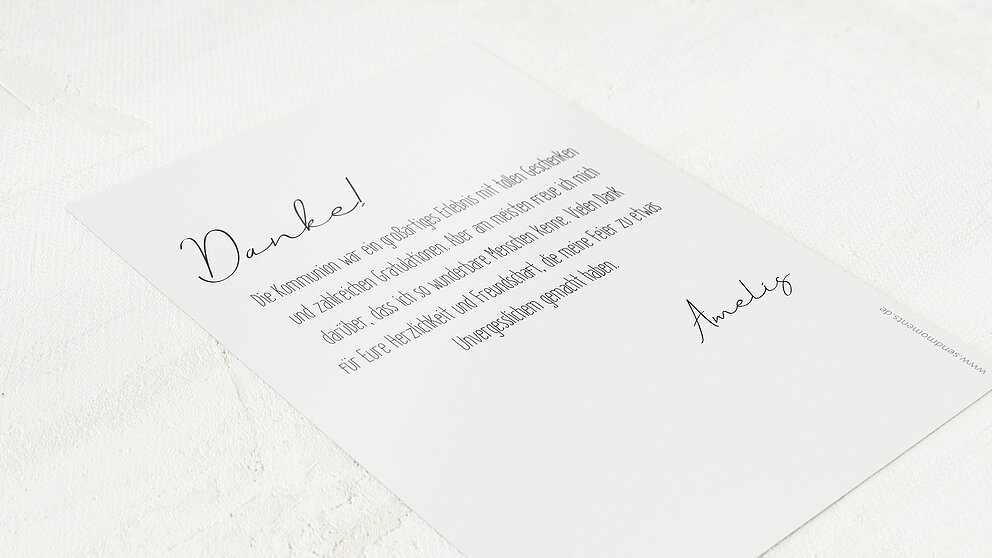 Danke!
Die Kommunion war ein großartiges Erlebnis mit tollen Geschenken
und zahlreichen Gratulationen. Aber am meisten freue ich mich
darüber, dass ich so wunderbare Menschen kenne. Vielen Dank
für Eure Herzlichkeit und Freundschaft, die meine Feier zu etwas
Unvergesslichem gemacht haben.
Amelis
www.sendmoments.de